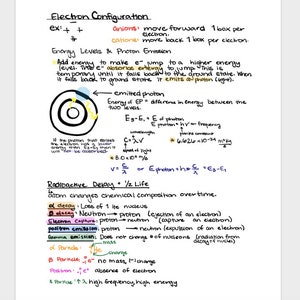 Electron Configuration
ex: + + anions: move forward 1 box per electron.
cations: move back 1 box per electron
Energy Levels & Photon Emission
Add energy to make e⁻ jump to a higher energy
level. The e⁻ absorbs energy to jump. This is
temporary until it falls back to the ground state. When
it falls back to ground state, it emits a photon (light).
emitted photon
Energy of EP = difference in energy between the
two levels.
E3-E1 = E of photon
E photon = hν
frequency
wavelength
C = λν
speed of light
3.0 × 10⁸ m/s
ν = C/λ or E photon = h C/λ = E3-E1
Radioactive Decay + 1/2 Life
atom changes chemical composition over time.
α decay: Loss of 1 He nucleus
β decay: Neutron → proton (ejection of an electron)
Electron capture: proton → neutron (capture an electron)
positron emission: proton → neutron (expulsion of an electron)
Gamma emission: Does not change # of nucleons (radiation from decay of nucleus)
mass
α Particle: He
charge
β Particle: e⁻ no mass, (-) charge
Positron: e⁺ absence of electron
high frequency, high energy